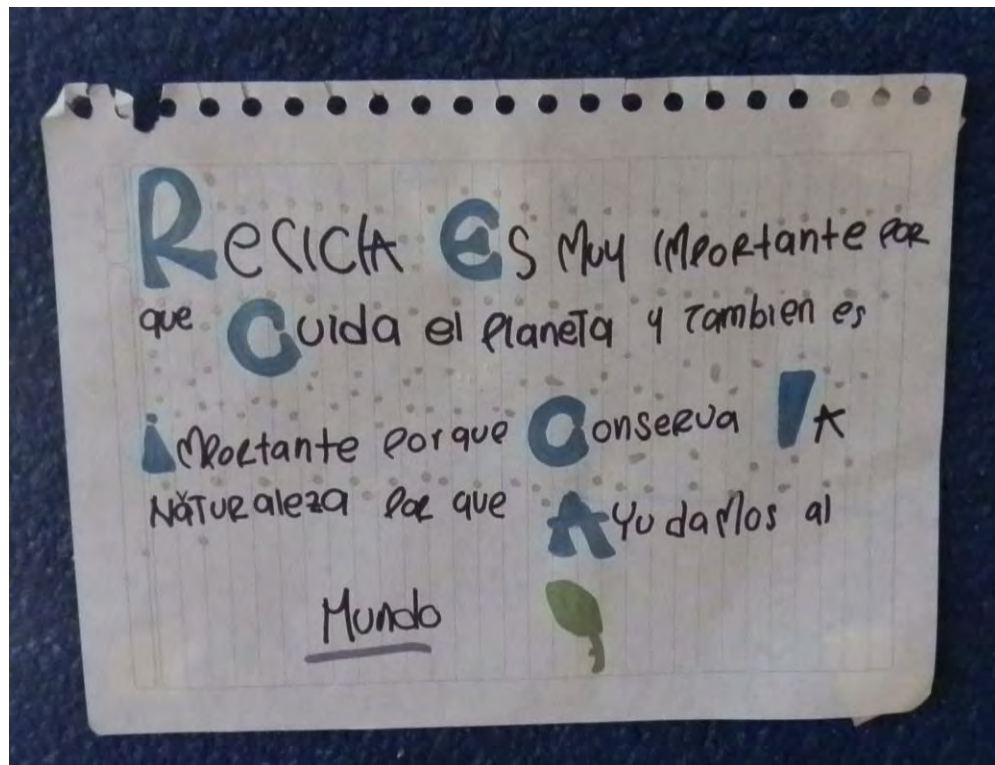 Recicla Es Muy importante por
que Cuida el Planeta y tambien es
importante Porque Conserva la
Naturaleza Por que Ayudamos al
Mundo